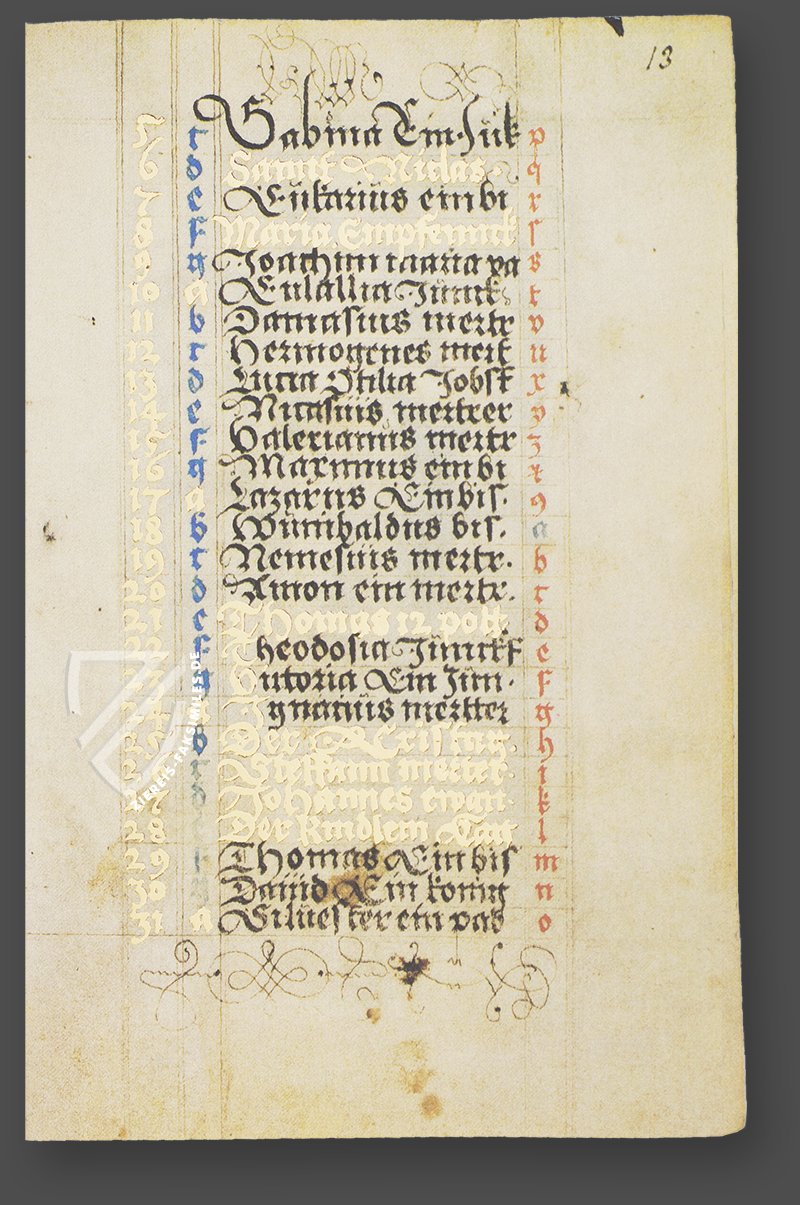 13
5 c Sabina Ein Juk p
6 d Sannt Niclas q
7 e Eukarius ein bi r
8 f Maria Empfennck ſ
9 g Joachim s
10 a Eulallia Junnk t
11 b Damasius mertr v
12 c Hermogenes mert u
13 d Lucia Otilia Jobst x
14 e Nicasius mertrer y
15 f Valerianus mertr z
16 g Maximus ein bi
17 a Lazarus Ein bis. 9
18 b Wunibaldus bis. a
19 c Nemesius mertr. b
20 d Amon ein mertr. c
21 e Thomas 12 pott d
22 f Theodosia Junckf e
g Ein Jun. f
Ignatius mertter g
b Der Cristag h
c Steffann mertrer i
d Johannes k
28 Der Kindlein Tag l
29 Thomas Ein bis m
30 Dauid Ein konig n
31 a Siluester ein pab o
ZIEREIS-FAKSIMILES.DE